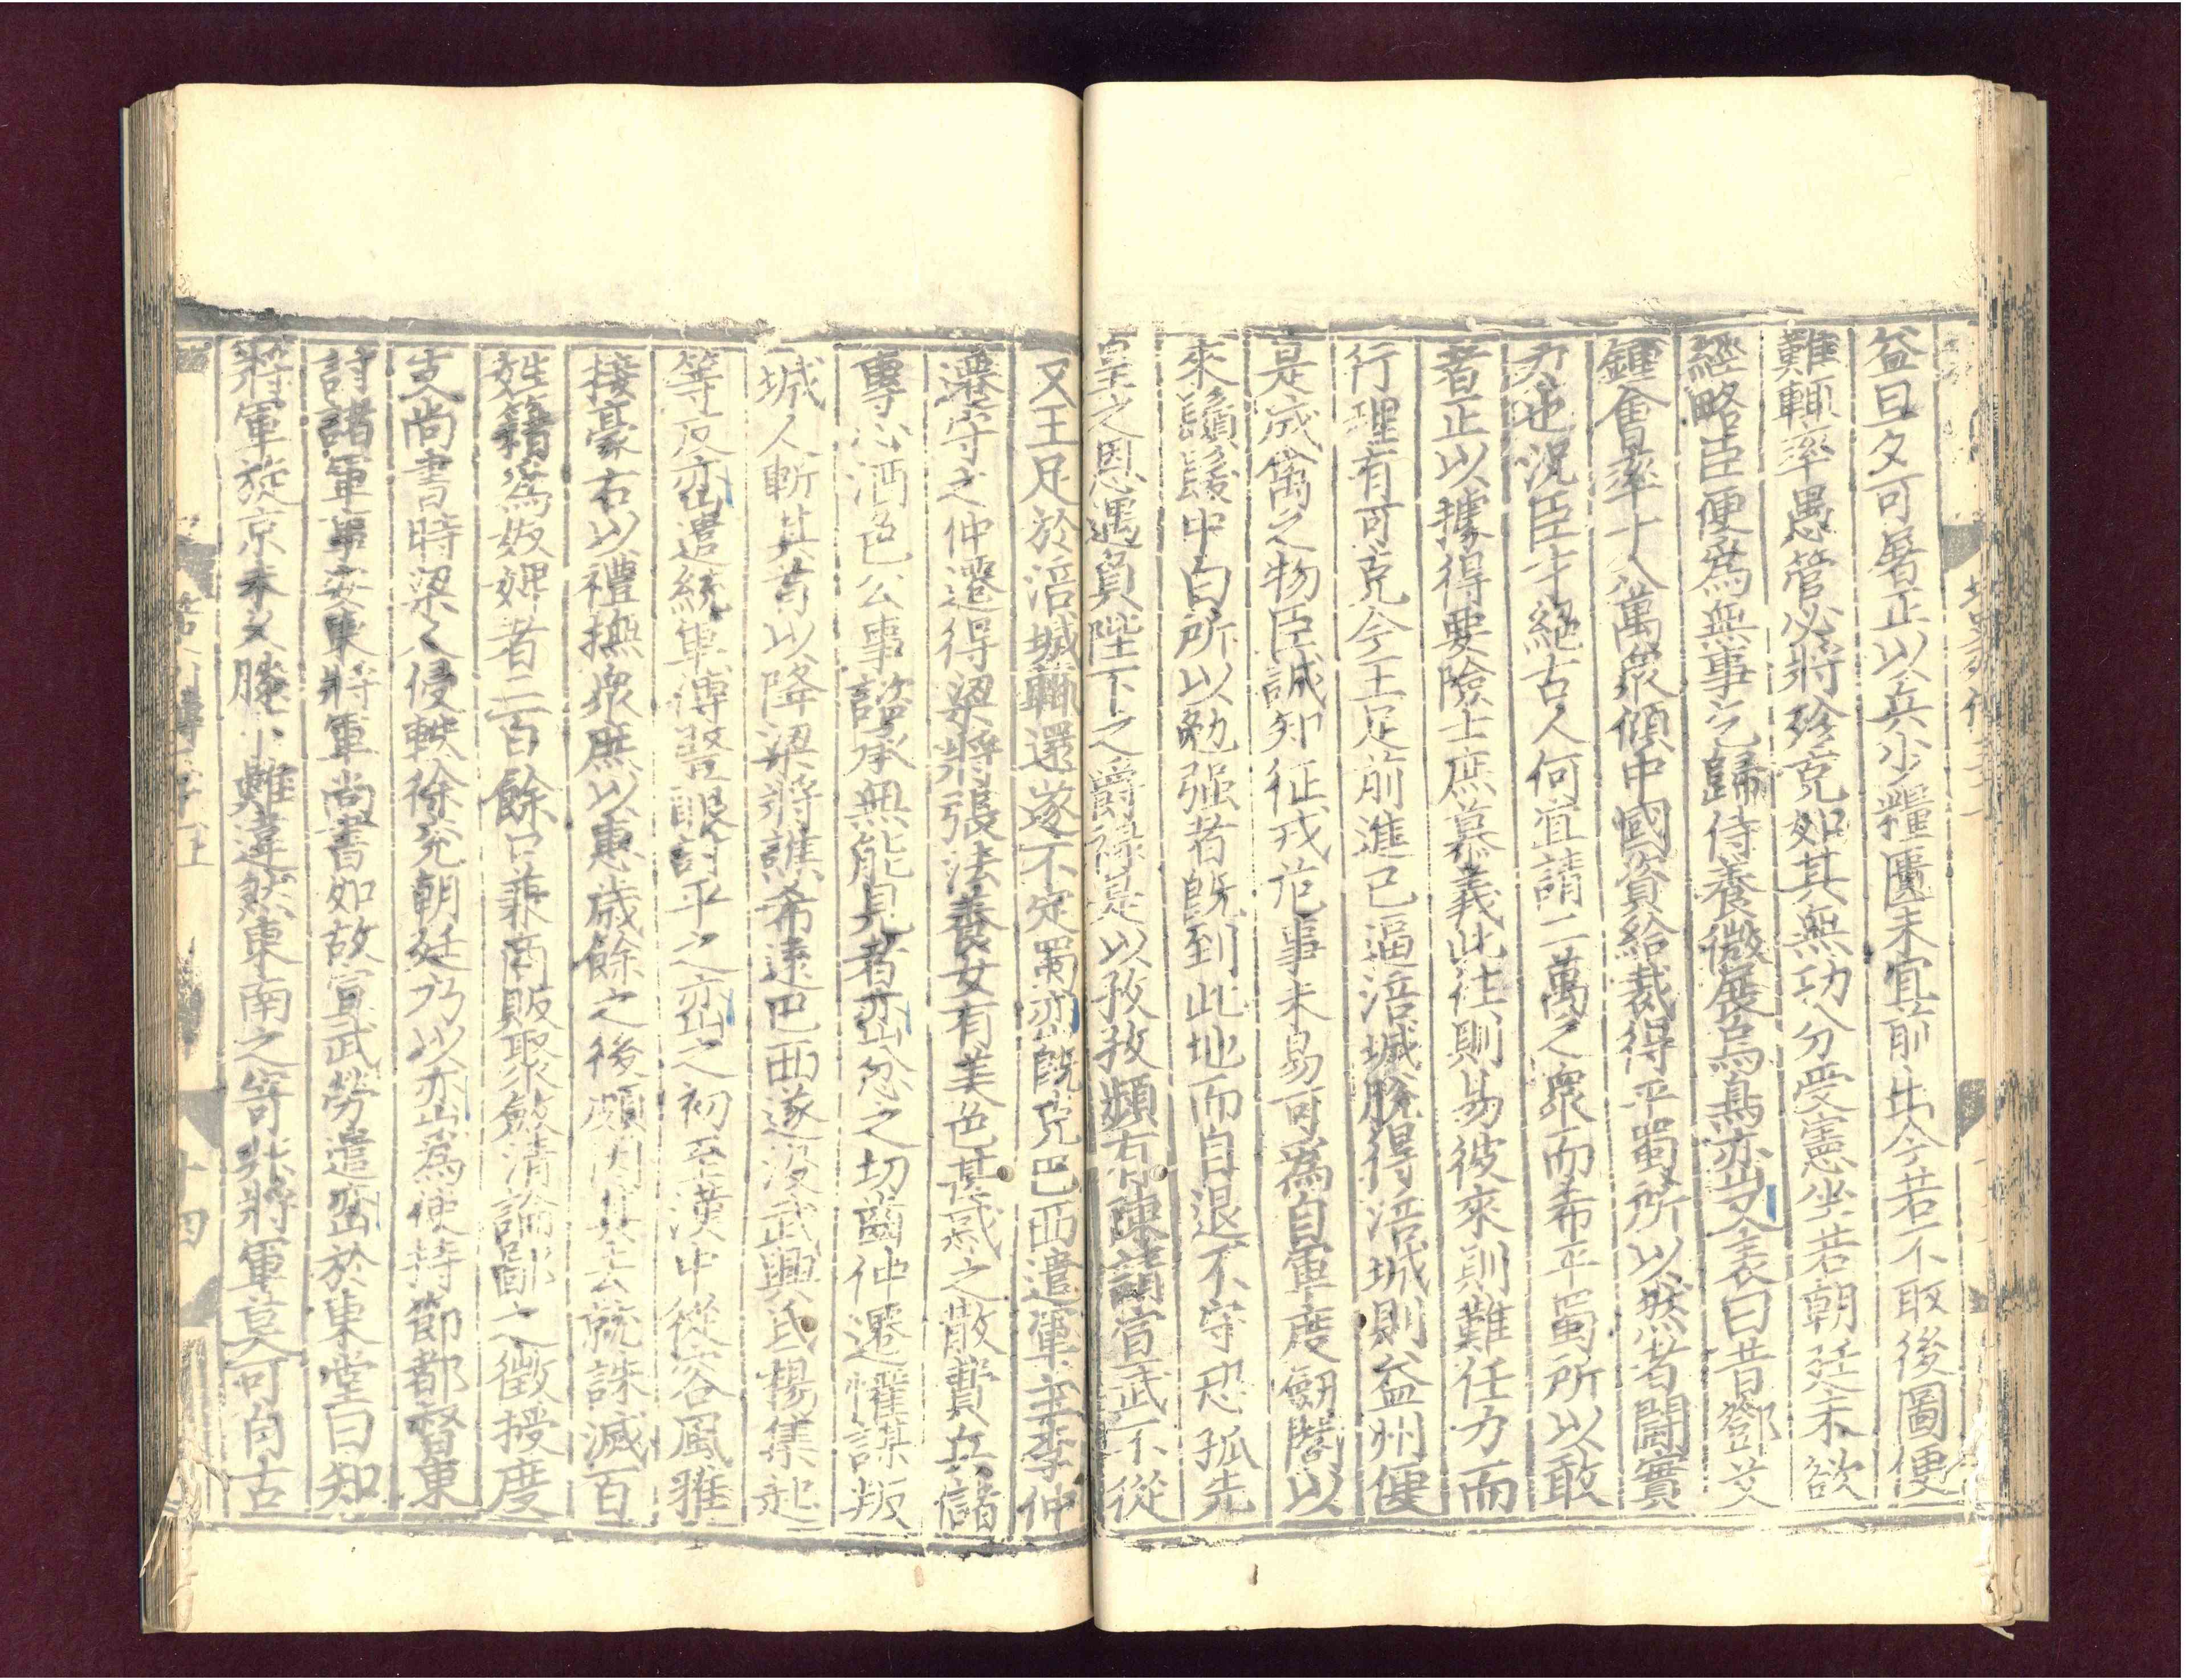 益旦夕可屠正以兵少糧匱未宜前出今若不取後圖便
難輒率愚管必將殄克如其無功分受憲坐若朝廷未欲
經略臣便爲無事乞歸侍養微展烏鳥亦巒又表曰昔鄧艾
鍾會率十八萬衆傾中國資給裁得平蜀所以然者鬪實
力也況臣才絕古人何宜請二萬之衆而希平蜀所以敢
者正以據得要險士庶慕義此往則易彼來則難任力而
行理有可克今王足前進已逼涪城脫得涪城則益州便
是成禽之物臣誠知征戎危事未易可爲自軍度劒閣以
來鬚髮中白所以勉强者旣到此地而自退不守恐孤先
皇之恩遇負陛下之爵祿是以孜孜頻有陳請宣武不從
又王足於涪城輒還遂不定蜀巒旣克巴西遣軍主李仲
遷守之仲遷得梁將張法養女有美色甚惑之散費兵儲
專心酒色公事諮承無能見者巒忿之切齒仲遷懼謀叛
城人斬其首以降梁將譙希遠巴西遂沒武興氐楊集起
等反巒遣統軍傅豎眼討平之巒之初至漢中從容風雅
接豪右以禮撫衆庶以惠歲餘之後頗因其去就誅滅百
姓籍爲奴婢者二百餘口兼商販聚斂清論鄙之徵授度
支尚書時梁人侵軼徐兗朝廷乃以巒爲使持節都督東
討諸軍事安東將軍尚書如故宣武勞遣巒於東堂曰知
將軍旋京未久膝下難違然東南之寄非將軍莫可自古
十四